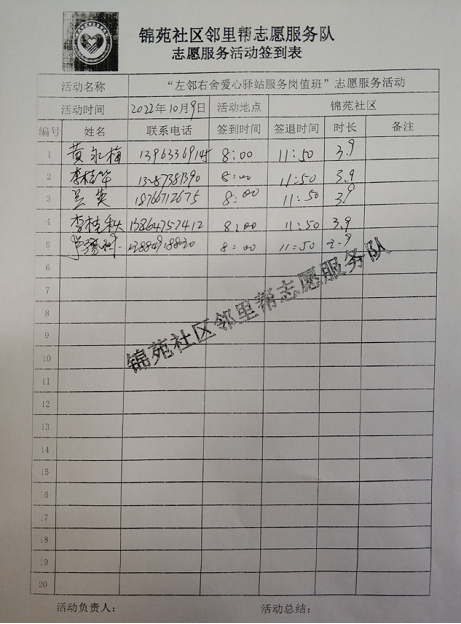 锦苑社区邻里帮志愿服务队
志愿服务活动签到表
活动名称 “左邻右舍爱心驿站服务岗值班”志愿服务活动
活动时间 2022年10月9日 活动地点 锦苑社区
编号 姓名 联系电话 签到时间 签退时间 时长 备注
1 黄永梅 8:00 11:50 3.9
2 李桂华 8:00 11:50 3.9
3 吴英 8:00 11:50 3.9
4 李桂秋 13864757412 8:00 11:50 3.9
5 8:00 11:50
6
7
8
9
锦苑社区邻里帮志愿服务队
10
11
12
13
14
15
16
17
18
19
20
活动负责人： 活动总结：